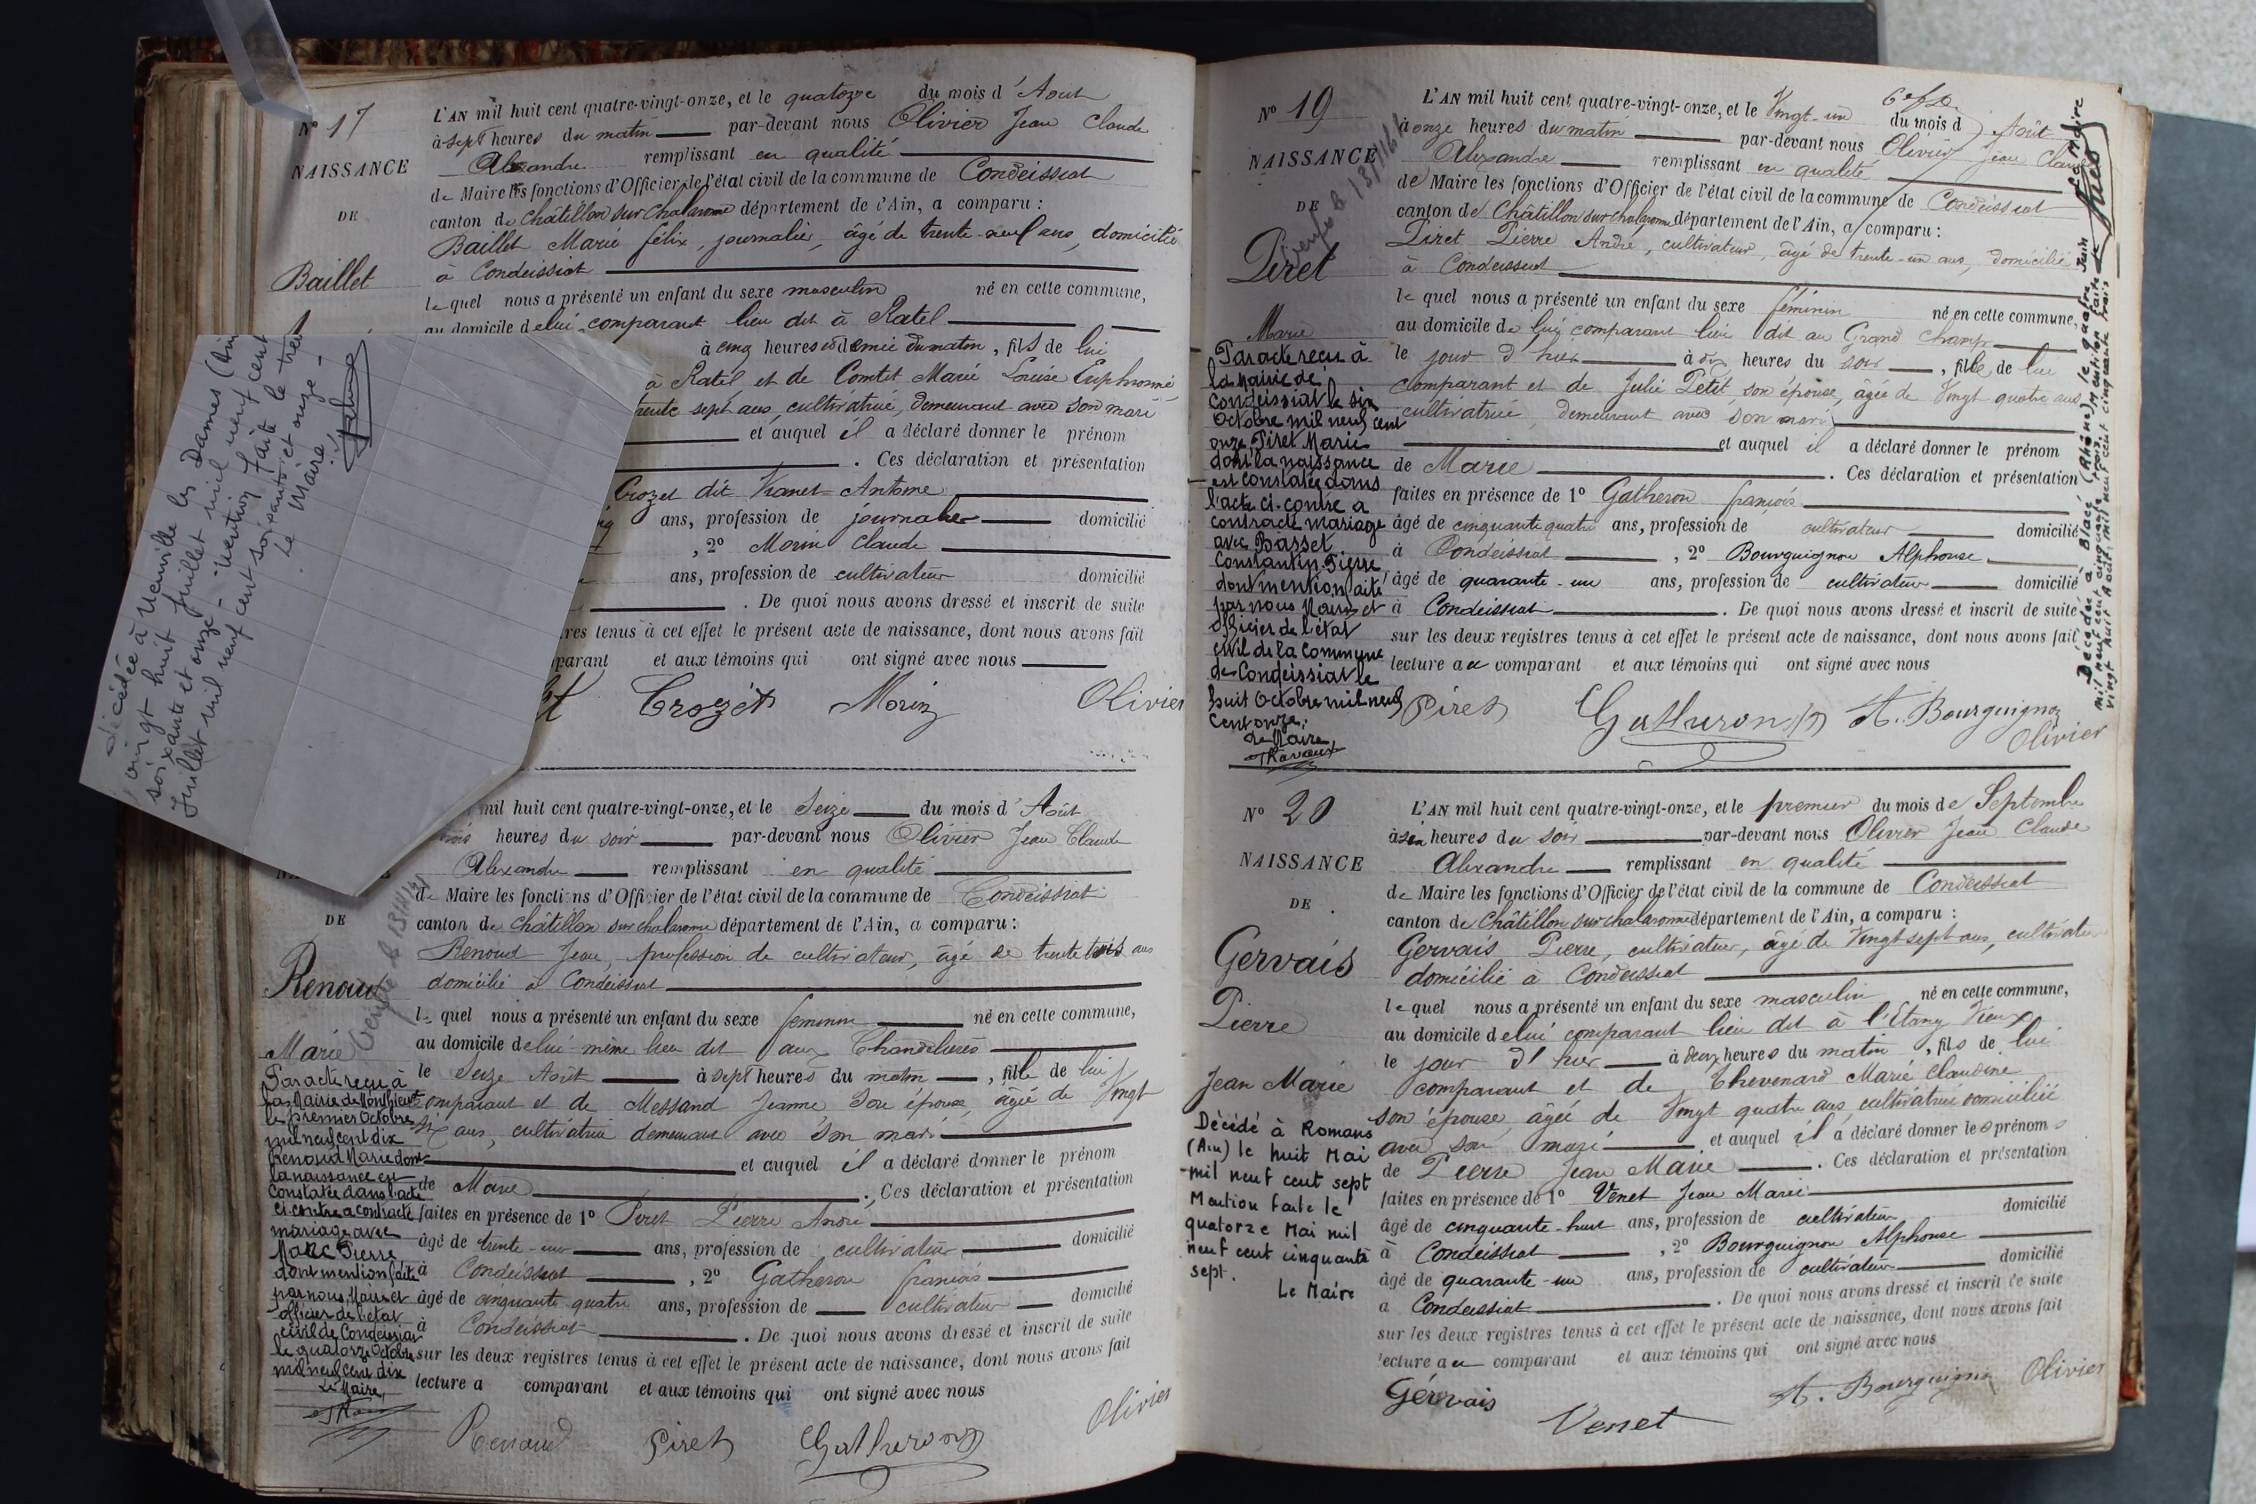 Nº 17
NAISSANCE
DE
Baillet
L'AN mil huit cent quatre-vingt-onze, et le quatorze du mois d'Août
à sept heures du matin par-devant nous Olivier Jean Claude
Alexandre remplissant en qualité
de Maire les fonctions d'Officier de l'état civil de la commune de Condeissiat
canton de Châtillon sur Chalaronne département de l'Ain, a comparu :
Baillet Marie félix, journalier, âgé de trente-neuf ans, domicilié
à Condeissiat
lequel nous a présenté un enfant du sexe masculin né en cette commune,
au domicile de lui comparant lieu dit à Ratel
à cinq heures et demie du matin, fils de lui
à Ratel et de Comtet Marie Louise Euphronie
trente sept ans, cultivatrice, demeurant avec son mari
et auquel il a déclaré donner le prénom
. Ces déclaration et présentation
Crozet dit Antoine
ans, profession de journalier domicilié
, 2º Morin Claude
ans, profession de cultivateur domicilié
. De quoi nous avons dressé et inscrit de suite
res tenus à cet effet le présent acte de naissance, dont nous avons fait
parant et aux témoins qui ont signé avec nous
Crozet Morin Olivier
décédée à Neuville les Dames (Ain
vingt huit juillet mil neuf cent
soixante et onze - Mention faite le
Juillet mil neuf cent soixante et onze -
Le Maire
mil huit cent quatre-vingt-onze, et le Seize du mois d'Août
heures du soir par-devant nous Olivier Jean Claude
Alexandre remplissant en qualité
de Maire les fonctions d'Officier de l'état civil de la commune de Condeissiat
canton de Châtillon sur Chalaronne département de l'Ain, a comparu :
Renoud Jean, profession de cultivateur, âgé de trente trois ans
domicilié à Condeissiat
lequel nous a présenté un enfant du sexe féminin né en cette commune,
au domicile de lui même lieu dit aux
le Seize Août à sept heures du matin, fille de lui
comparant et de Messand Jeanne, son épouse, âgée de Vingt
six ans, cultivatrice demeurant avec son mari
et auquel il a déclaré donner le prénom
de Marie . Ces déclaration et présentation
faites en présence de 1º Piret Pierre André
âgé de trente-un ans, profession de cultivateur domicilié
à Condeissiat , 2º Gatheron françois
âgé de cinquante quatre ans, profession de cultivateur domicilié
à Condeissiat . De quoi nous avons dressé et inscrit de suite
sur les deux registres tenus à cet effet le présent acte de naissance, dont nous avons fait
lecture a comparant et aux témoins qui ont signé avec nous
Renoud Piret Gatheron Olivier
DE
Renoud
Marie
Par acte reçu à
la Mairie de
le premier Octobre
mil neuf cent dix
Renoud Marie dont
la naissance est
constatée dans l'acte
ci-contre a contracté
mariage avec
Marc Pierre
dont mention faite
par nous, Maire et
officier de l'état
civil de Condeissiat
le quatorze Octobre
mil neuf cent dix
Le Maire,
Nº 19
NAISSANCE
DE
Piret
Marie
Par acte reçu à
la Mairie de
Condeissiat le six
Octobre mil neuf cent
onze, Piret Marie
dont la naissance
est constatée dans
l'acte ci-contre a
contracté mariage
avec Basset
Constantin Pierre
dont mention faite
par nous Maire et
officier de l'état
civil de la Commune
de Condeissiat le
huit Octobre mil neuf
cent onze.
Le Maire
Thavaux
L'AN mil huit cent quatre-vingt-onze, et le Vingt-un du mois d Août
à onze heures du matin par-devant nous Olivier Jean Claude
Alexandre remplissant en qualité
de Maire les fonctions d'Officier de l'état civil de la commune de Condeissiat
canton de Châtillon sur Chalaronne département de l'Ain, a comparu :
Piret Pierre André, cultivateur, âgé de trente-un ans, domicilié
à Condeissiat
lequel nous a présenté un enfant du sexe féminin né en cette commune,
au domicile de lui comparant lieu dit au Grand Champ
le jour d'hier à dix heures du soir, fille de lui
comparant et de Julie Petit, son épouse, âgée de Vingt quatre ans
cultivatrice, demeurant avec son mari
et auquel il a déclaré donner le prénom
de Marie . Ces déclaration et présentation
faites en présence de 1º Gatheron françois
âgé de cinquante quatre ans, profession de cultivateur domicilié
à Condeissiat , 2º Bourguignon Alphonse
âgé de quarante-un ans, profession de cultivateur domicilié
à Condeissiat . De quoi nous avons dressé et inscrit de suite
sur les deux registres tenus à cet effet le présent acte de naissance, dont nous avons fait
lecture au comparant et aux témoins qui ont signé avec nous
Piret Gatheron A. Bourguignon
Olivier
Décédée à Blacé (Rhône) le quatre Juin
mil neuf cent cinquante trois. Mention faite le
vingt huit Août mil neuf cent cinquante trois
Le Maire
Nº 20
NAISSANCE
DE
Gervais
Pierre
Jean Marie
Décédé à Romans
(Ain) le huit Mai
mil neuf cent sept
Mention faite le
quatorze Mai mil
neuf cent cinquante
sept.
Le Maire
L'AN mil huit cent quatre-vingt-onze, et le premier du mois de Septembre
à six heures du soir par-devant nous Olivier Jean Claude
Alexandre remplissant en qualité
de Maire les fonctions d'Officier de l'état civil de la commune de Condeissiat
canton de Châtillon sur Chalaronne département de l'Ain, a comparu :
Gervais Pierre, cultivateur, âgé de Vingt sept ans, cultivateur
domicilié à Condeissiat
lequel nous a présenté un enfant du sexe masculin né en cette commune,
au domicile de lui comparant lieu dit à l'Etang Vieux
le jour d'hier à deux heures du matin, fils de lui
comparant et de Thevenard Marie Claudine
son épouse, âgée de Vingt quatre ans, cultivatrice domiciliée
avec son mari et auquel il a déclaré donner les prénoms
de Pierre Jean Marie . Ces déclaration et présentation
faites en présence de 1º Venet Jean Marie
âgé de cinquante-huit ans, profession de cultivateur domicilié
à Condeissiat , 2º Bourguignon Alphonse
âgé de quarante-un ans, profession de cultivateur domicilié
à Condeissiat . De quoi nous avons dressé et inscrit de suite
sur les deux registres tenus à cet effet le présent acte de naissance, dont nous avons fait
lecture au comparant et aux témoins qui ont signé avec nous
Gervais Venet A. Bourguignon Olivier